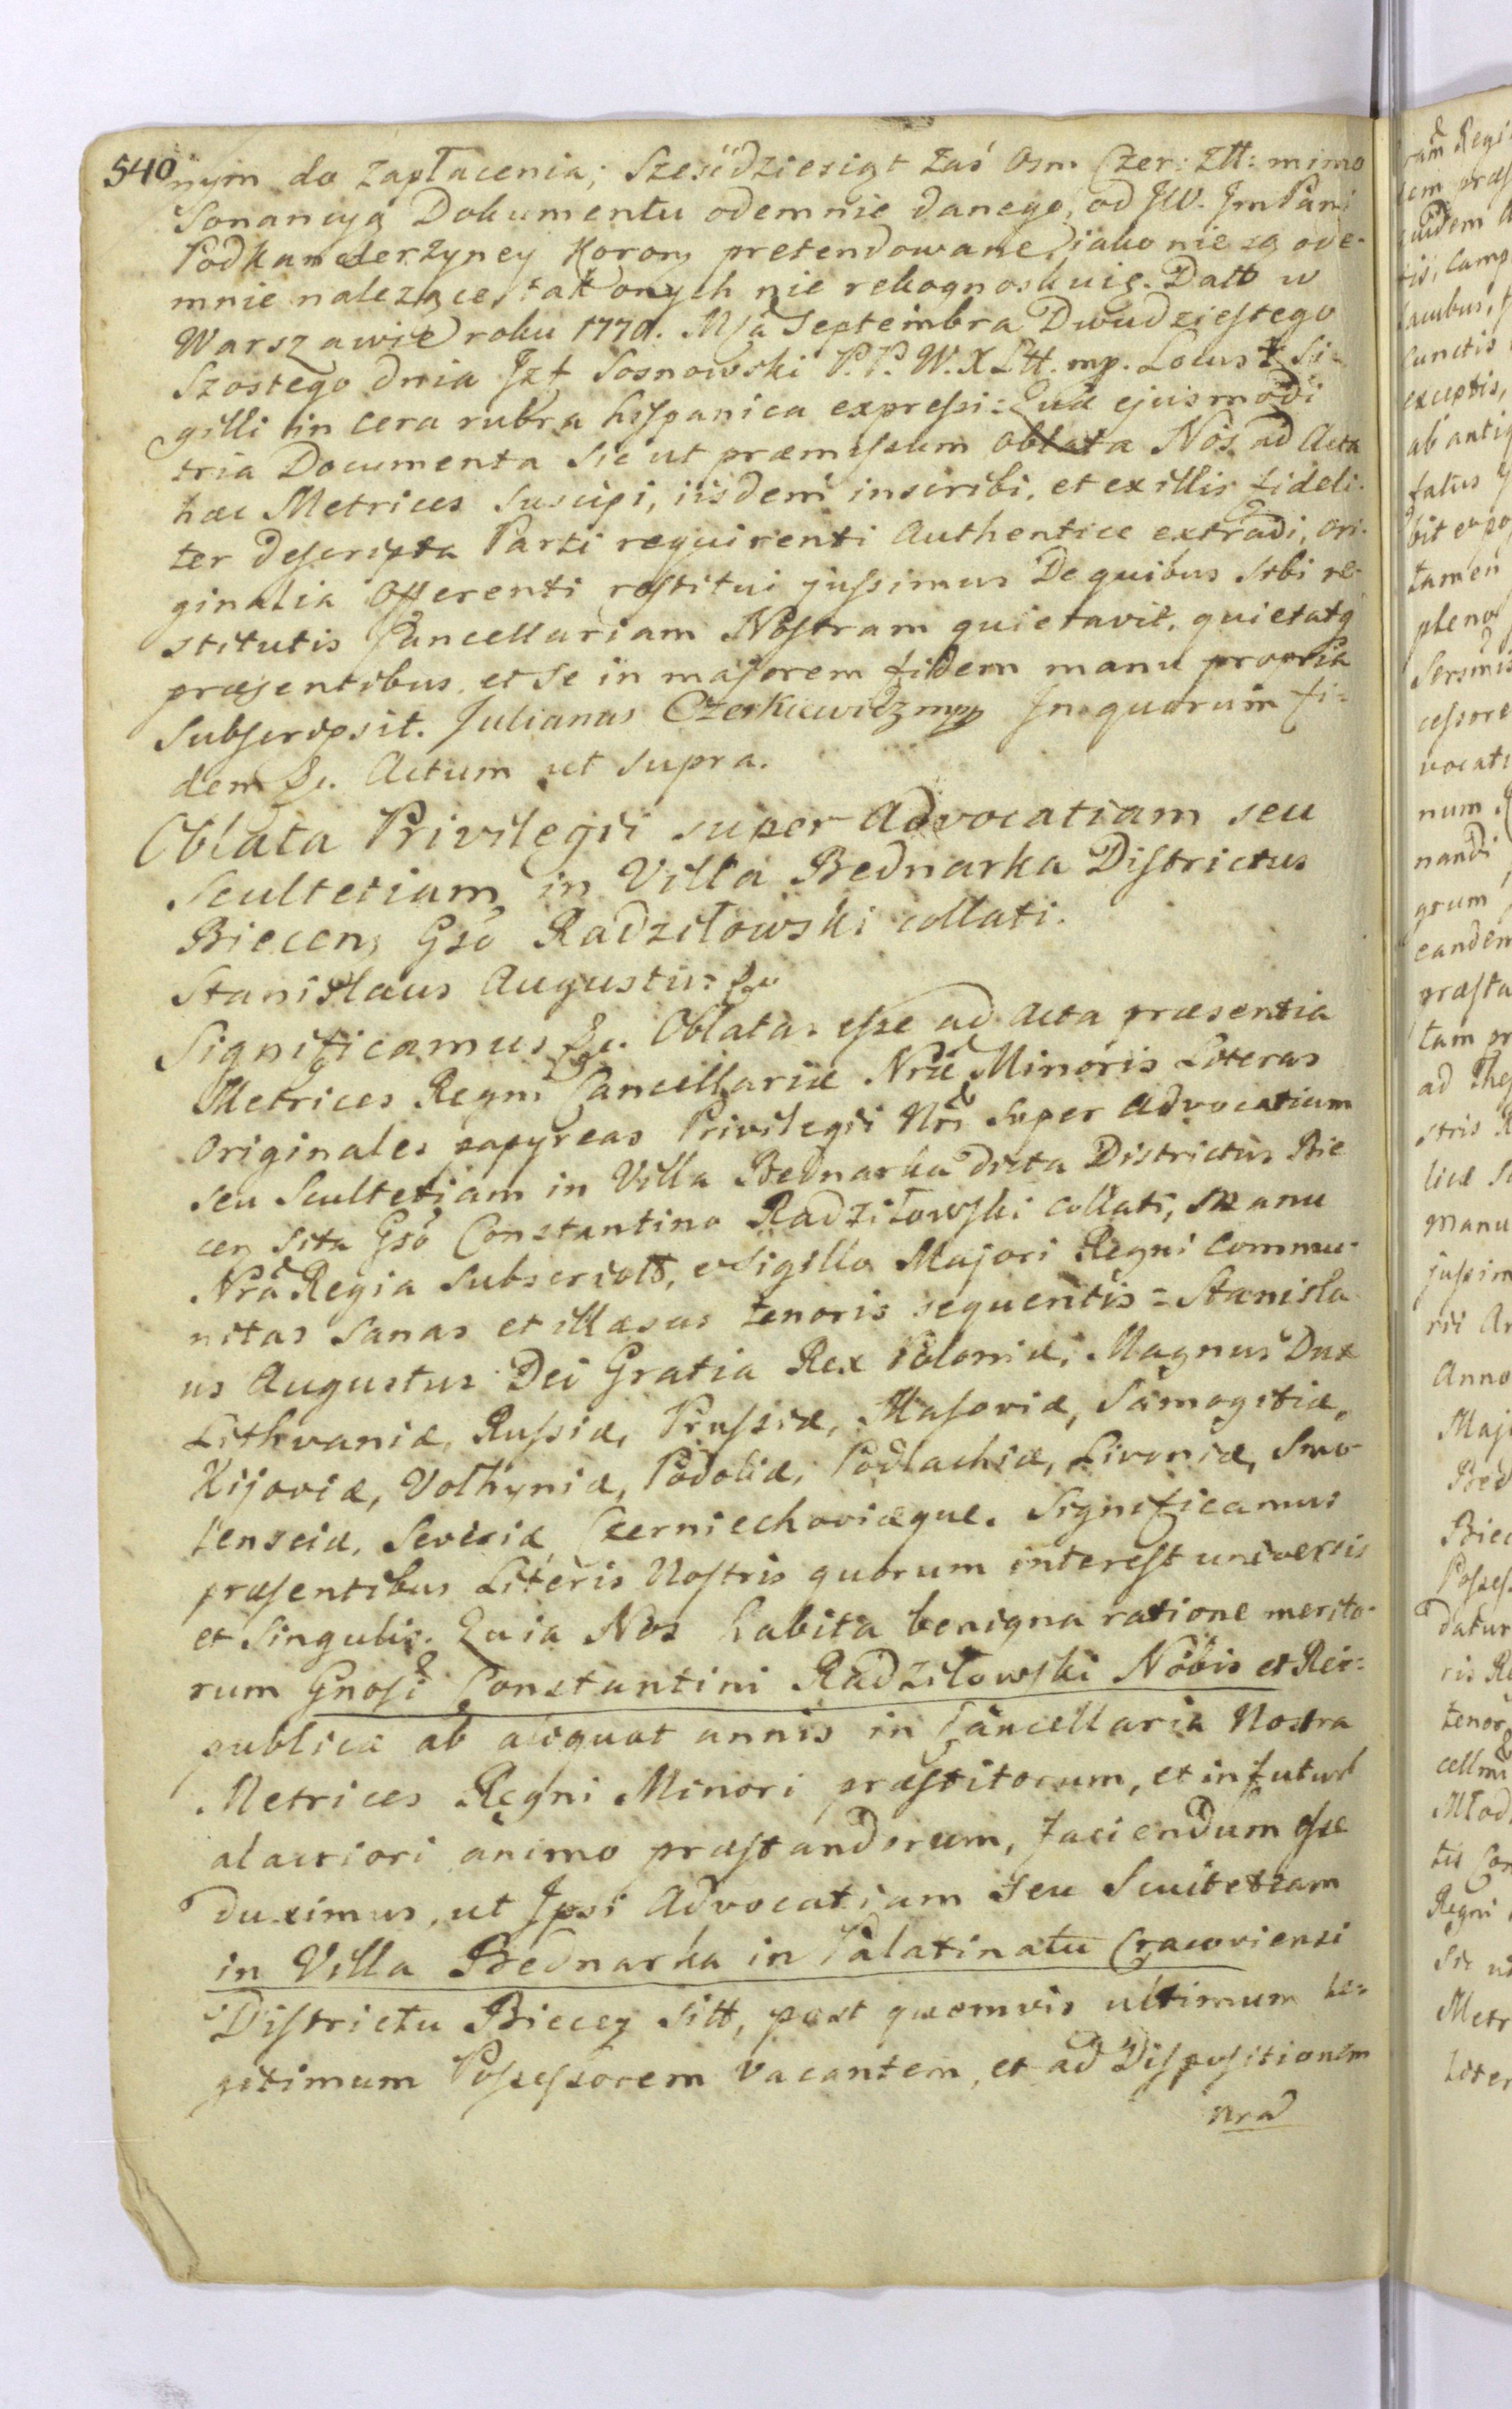 540
nym do zapłacenia; Sześćdziesiąt zaś Osm Czer: Złł: mimo
Sonancyą Dokumentu odemnie danego, od JW. Jm Pani
Podkanclerzyney Korony pretendowane, iako nie są ode-
mnie należące, tak onych nie rekognoskuię. Datt w
Warszawie roku 1770. Msca Septembra Dwudziestego
Szostego dnia Jzf Sosnowski P. P. W. X Ltt. mp. Locus Si-
gilli in cera rubra hispanica expressi: Quæ ejusmodi
tria Documenta Sic ut præmissum oblata Nos ad Acta
hæc Metrices Suscipi, iisdem inscribi, et ex illis fideli-
ter descripta Parti requirenti Authentice extradi, ori-
ginalia Offerenti restitui jussimus De quibus Sibi re-
stitutis Cancellariam Nostram quietavit, quietatq
præsentibus, et Se in majorem fidem manu propria
Subscripsit. Julianus Czerkiewicz mpp In quorum fi-
dem &c. Actum ut Supra.
Oblata Privilegii super Advocatiam seu
Scultetiam in Villa Bednarka Districtus
Biecen, Gso Radziłowski collati.
Stanislaus Augustus &c
Significamus &c. Oblatas esse ad Acta præsentia
Metrices Regni Cancellariæ Nræ Minoris Literas
Originales papyreas Privilegii Nri Super Advocatiam
seu Scultetiam in Villa Bednarka dicta Districtus Bie
cen sita Gso Constantino Radziłowski collati, Manu
Nra Regia Subscriptt, et Sigillo Majori Regni Commu-
nitas Sanas et illæsas tenoris sequentis = Stanisla
us Augustus Dei Gratia Rex Poloniæ, Magnus Dux
Lithvaniæ, Russiæ, Prussiæ, Masoviæ, Samogitiæ,
Kijoviæ, Volhyniæ, Podoliæ, Podlachiæ, Livoniæ, Smo-
lensciæ, Severiæ Czerniechoviæque. Significamus
præsentibus Literis Nostris quorum interest universis
et Singulis. Quia Nos habita benigna ratione merito-
rum Gnosi Constantini Radziłowski Nobis et Rei-
publicæ ab aliquot annis in Cancellaria Nostra
Metrices Regni Minori præstitorum, et in futur
alacriori animo præstandorum, faciendum esse
duximus, ut Ipsi Advocatiam seu Scultetiam
in Villa Bednarka in Palatinatu Cracoviensi
Districtu Biecen Sitt, post quemvis ultimum le-
gitimum Possessorem Vacantem, et ad Dispositionem
nra